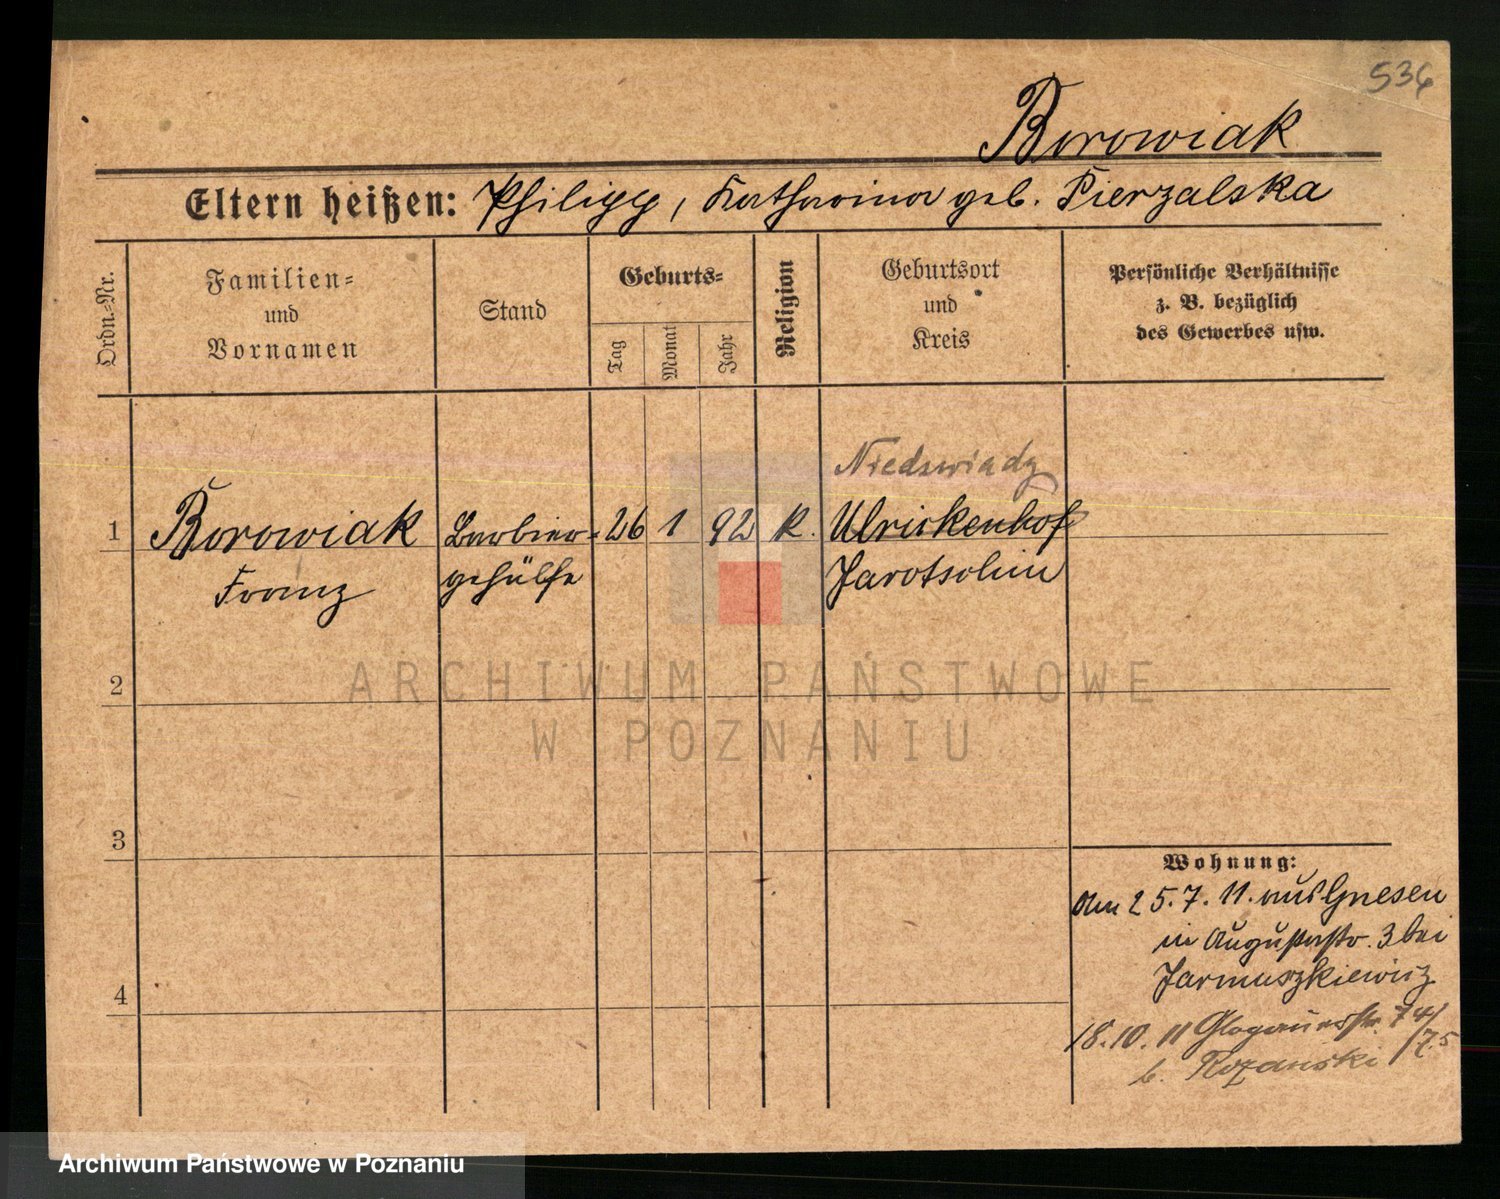 536
Borowiak
Eltern heißen: Philipp, Katharina geb. Pierzalska
Ordn.-Nr.
Familien-
und
Vornamen
Stand
Geburts-
Tag
Monat
Jahr
Religion
Geburtsort
und
Kreis
Persönliche Verhältnisse
z. B. bezüglich
des Gewerbes usw.
Niedswiady
1 Borowiak Barbier- 26 1 92 K. Ulrickenhof
Franz gehülfe Jarotschin
2
3
4
Wohnung:
Am 25.7.11. aus Gnesen
in Augustastr. 3 bei
Jarmuszkiewicz
18.10.11 Glogauerstr. 74/75
b. Rozanski
ARCHIWUM PAŃSTWOWE
W POZNANIU
Archiwum Państwowe w Poznaniu